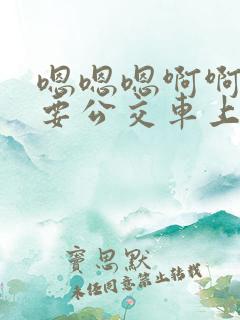 嗯嗯嗯啊啊
要公交車上
寶思默
未任同意禁止转载